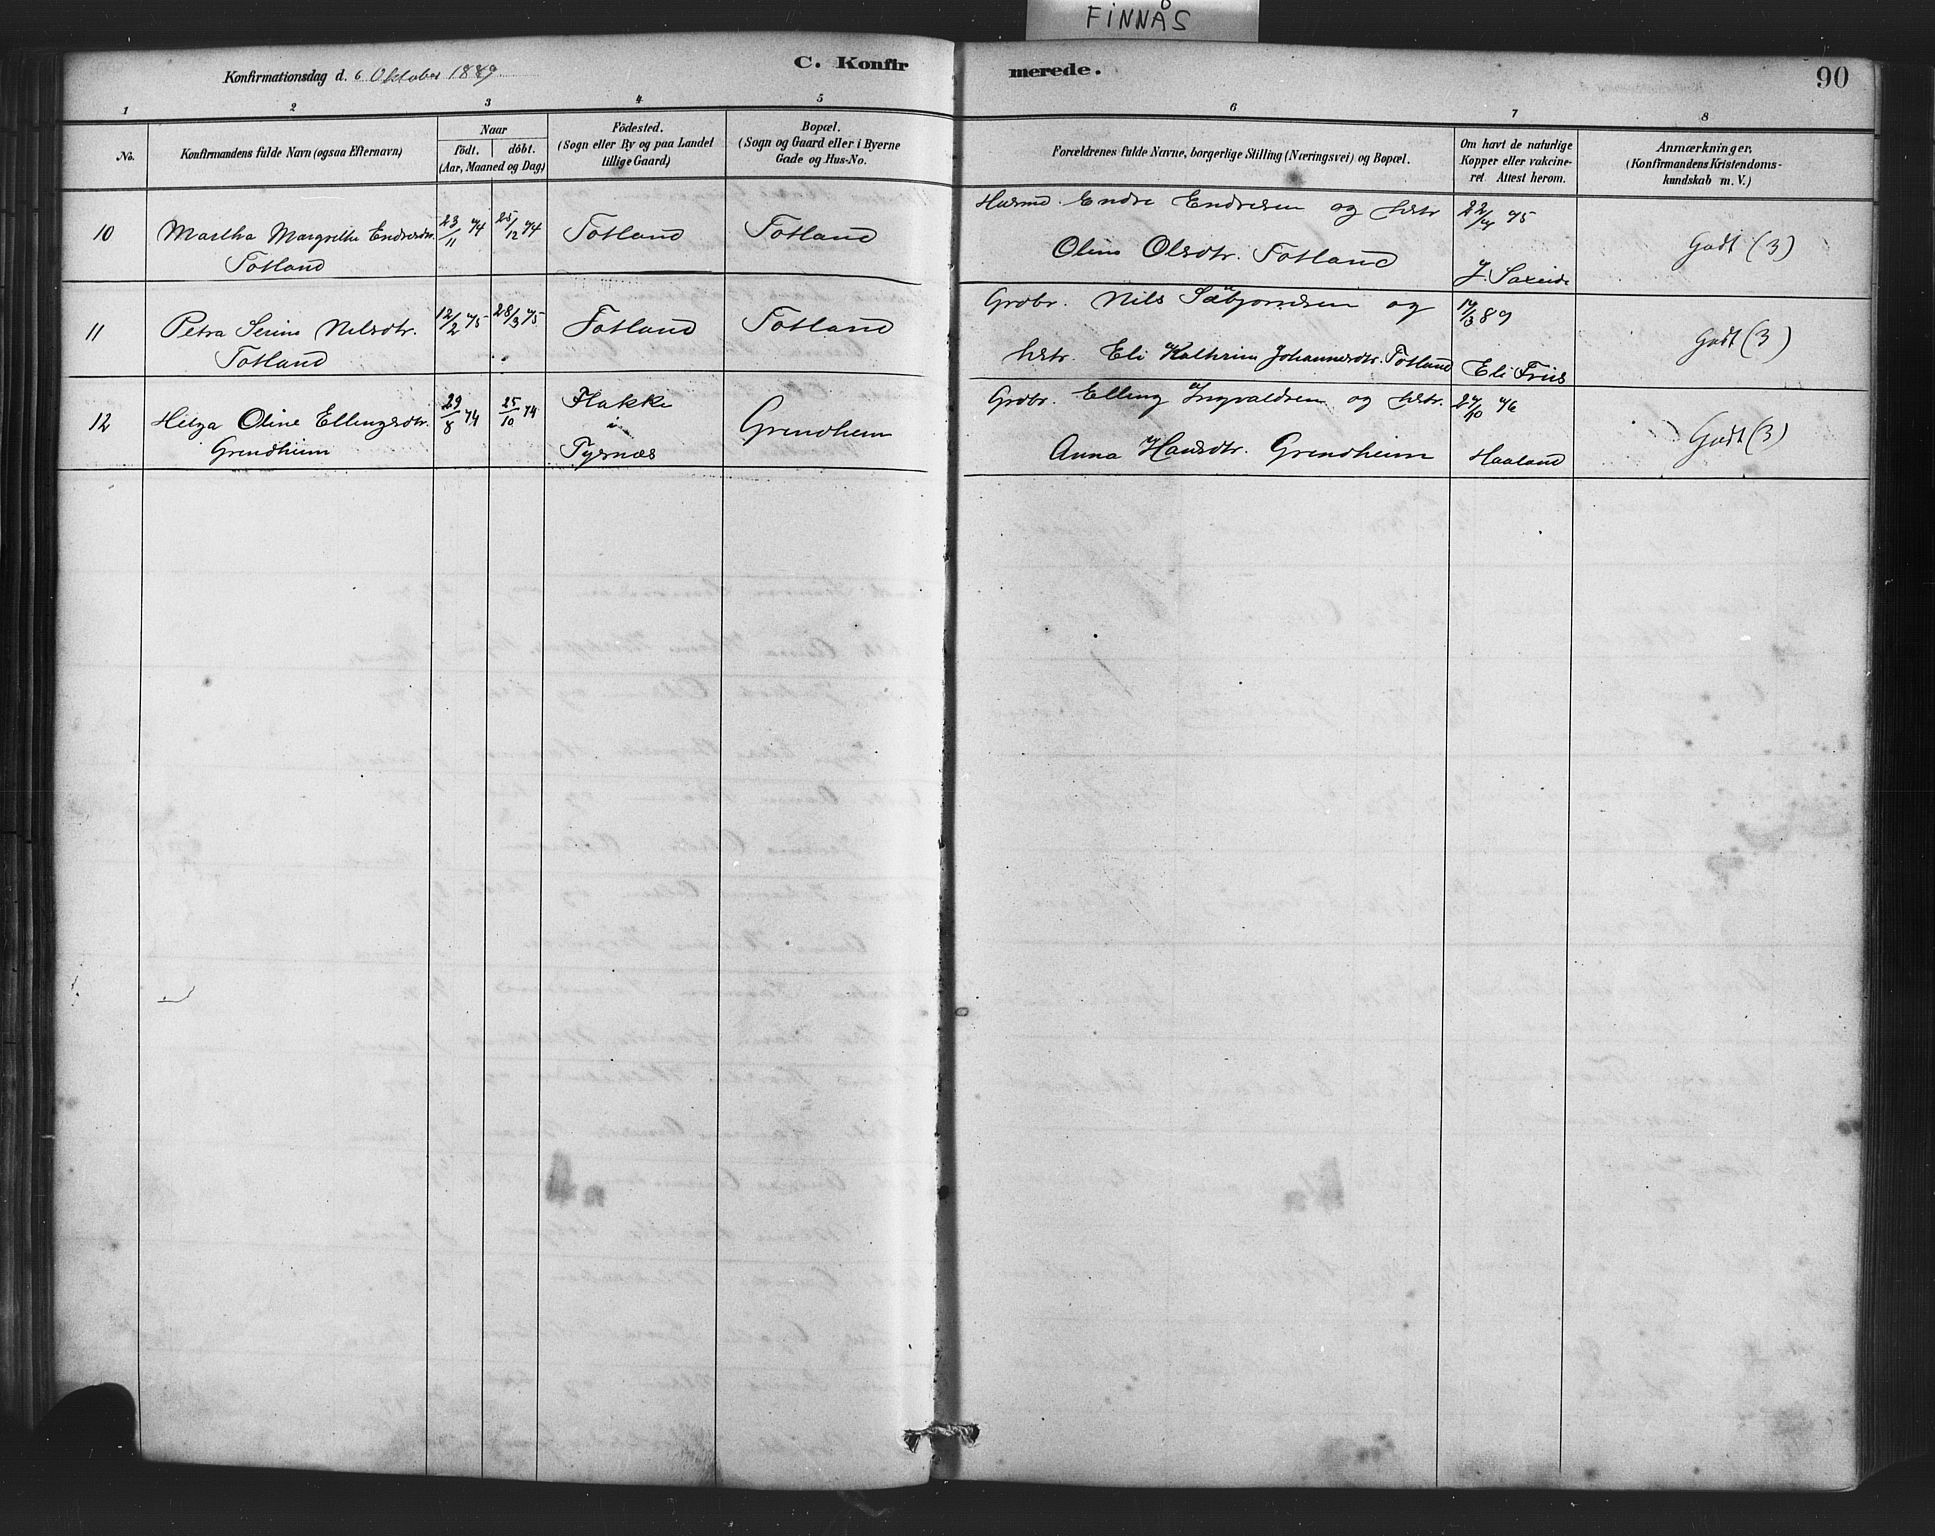 FINNÅS
Konfirmationsdag d. 6 Oktober 1889
C. Konfirmerede.
90
1 2 3 4 5 6 7 8
No.
Konfirmandens fulde Navn (ogsaa Efternavn)
Naar
födt. döbt.
(Aar, Maaned og Dag)
Födested.
(Sogn eller By og paa Landet
tillige Gaard)
Bopæl.
(Sogn og Gaard eller i Byerne
Gade og Hus-No.
Forældrenes fulde Navne, borgerlige Stilling (Næringsvei) og Bopæl.
Om havt de naturlige
Kopper eller vakcine-
ret Attest herom.
Anmærkninger,
(Konfirmandens Kristendoms-
kundskab m. V.)
10 Martha Margrethe Endresdtr. 23/11 74 25/12 74 Totland Totland Husmd. Endre Endresen og hstr 22/4 75
Totland Oline Olsdtr. Totland J. Saxeide Godt (3)
11 Petra Serine Nilsdtr. 12/2 75 28/3 75 Totland Totland Grdbr. Nils Sæbjørnsen og 14/3 89
Totland hstr. Eli Kathrine Johannesdtr. Totland Eli Friis Godt (3)
12 Helga Oline Ellingsdtr. 29/8 74 25/10 74 Flakke i Tysnæs Grendheim Grdbr. Elling Ingvaldsen og hstr. 24/10 76
Grendheim Anna Hansdtr. Grendheim Haaland Godt (3)